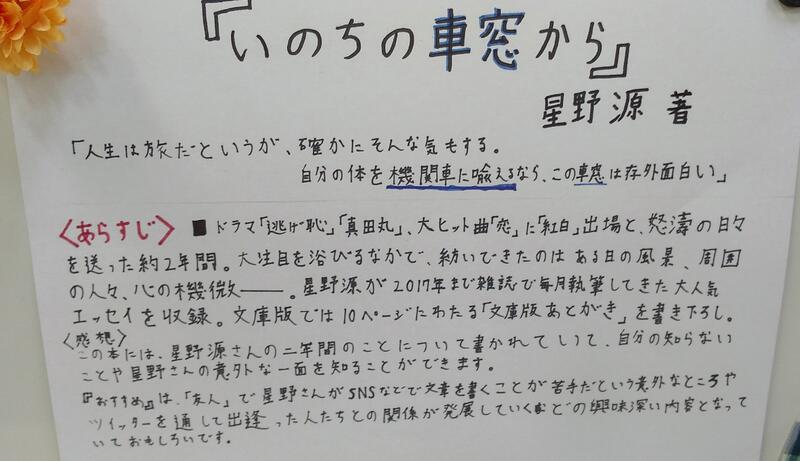 『いのちの車窓から』
星野源 著
「人生は旅だというが、確かにそんな気もする。
自分の体を機関車に喩えるなら、この車窓は存外面白い」
〈あらすじ〉 ■ ドラマ「逃げ恥」「真田丸」、大ヒット曲「恋」に「紅白」出場と、怒濤の日々
を送った約2年間。大注目を浴びるなかで、紡いできたのは ある日の風景、周囲
の人々、心の機微――。星野源が2017年まで雑誌で毎月執筆してきた大人気
エッセイを収録。文庫版では10ページにわたる「文庫版あとがき」を書き下ろし。
〈感想〉
この本には、星野源さんの二年間のことについて書かれていて、自分の知らない
ことや星野さんの意外な一面を知ることができます。
『おすすめ』は、「友人」で星野さんがSNSなどで文章を書くことが苦手だという意外なところや
ツイッターを通して出逢った人たちとの関係が発展していくなどの興味深い内容となって
いておもしろいです。